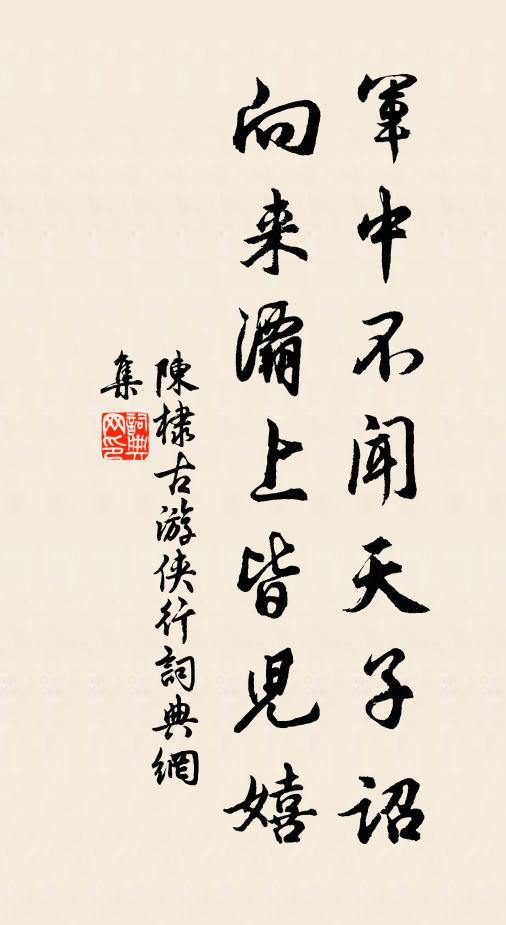 軍中不聞天子詔
向来灞上皆児嬉
陳棣古游俠行詞典網
集
詞典
网印